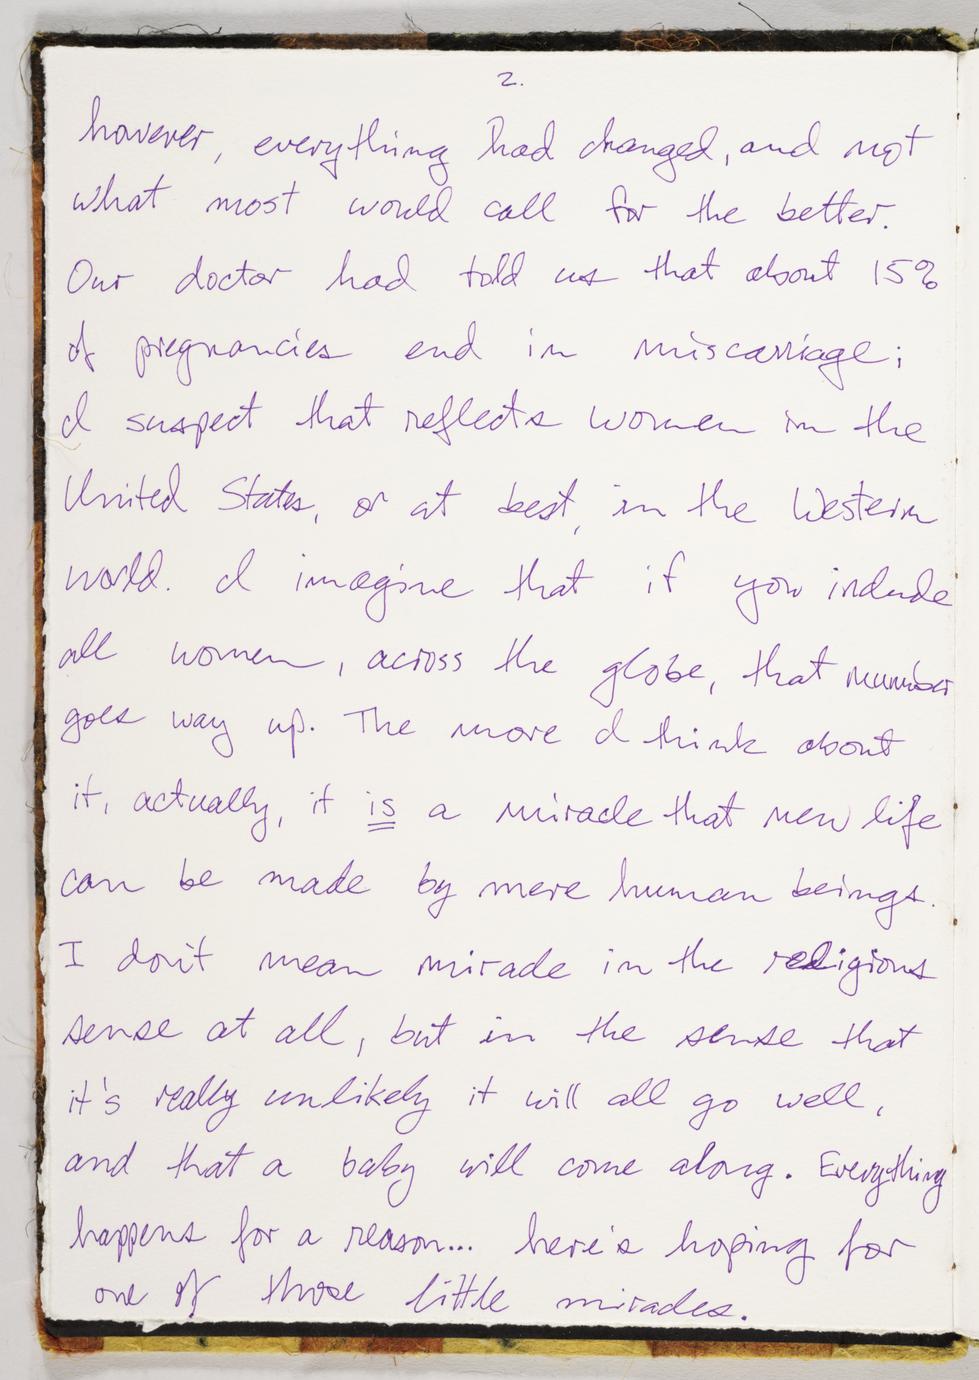 2.
however, everything had changed, and not
what most would call for the better.
Our doctor had told us that about 15%
of pregnancies end in miscarriage;
I suspect that reflects women in the
United States, or at best, in the Western
world. I imagine that if you include
all women, across the globe, that number
goes way up. The more I think about
it, actually, it is a miracle that new life
can be made by mere human beings.
I don't mean miracle in the religious
sense at all, but in the sense that
it's really unlikely it will all go well,
and that a baby will come along. Everything
happens for a reason... here's hoping for
one of those little miracles.